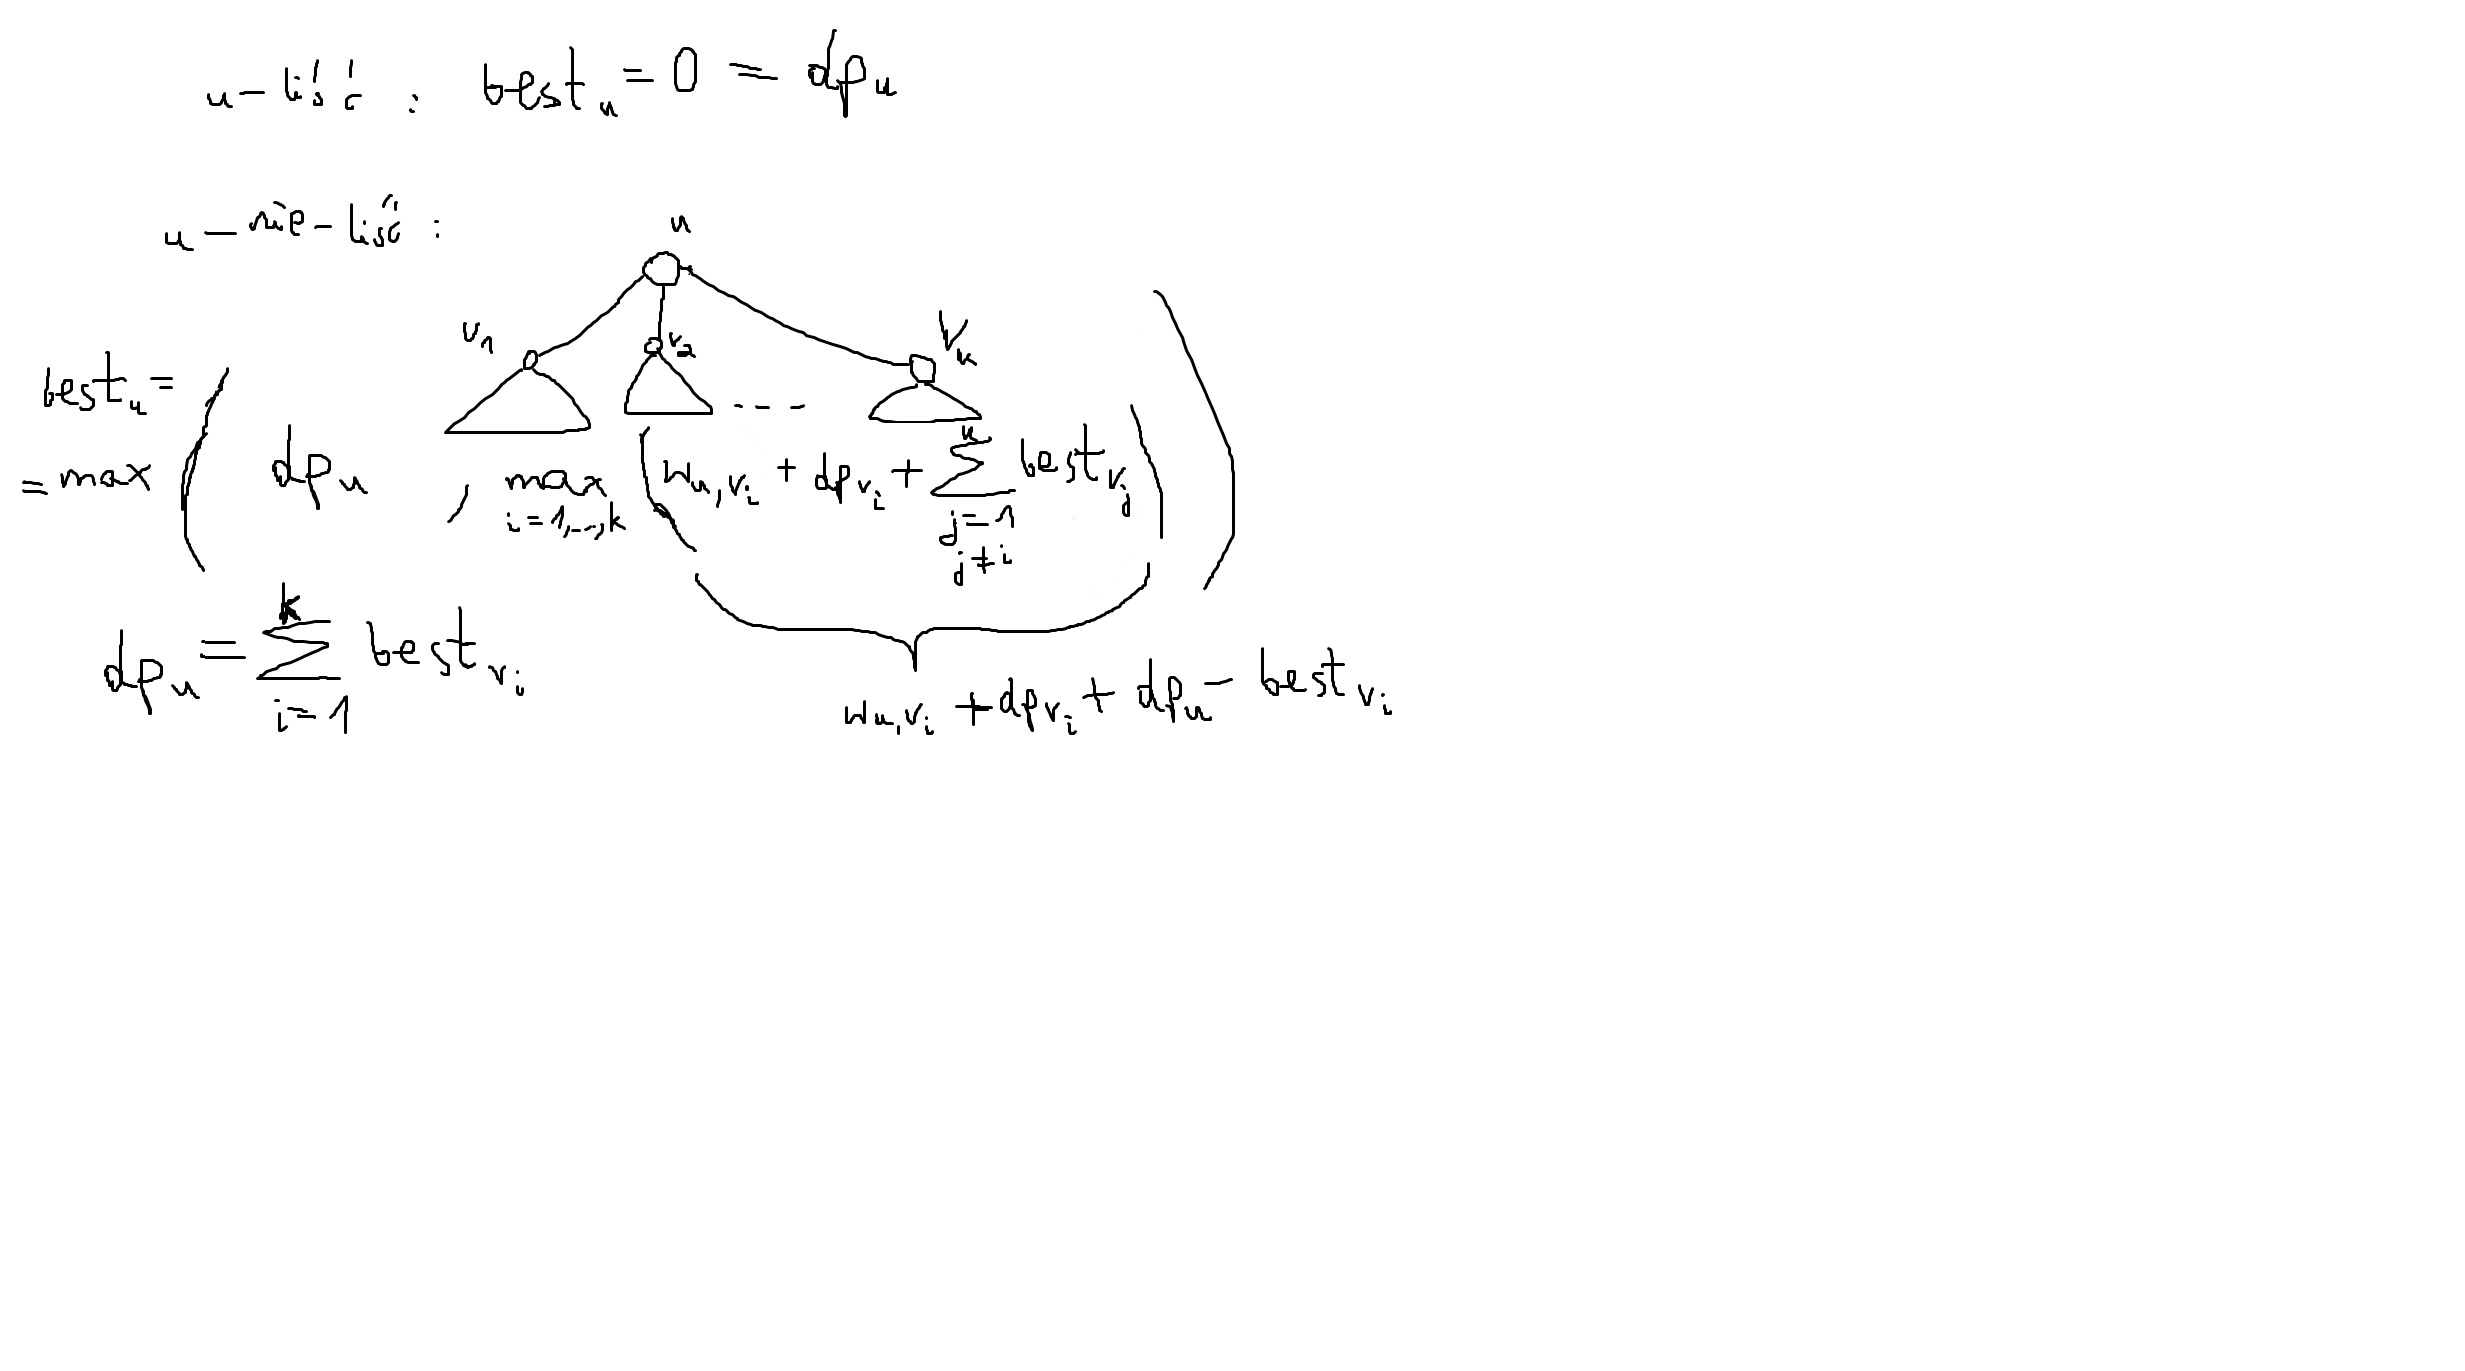 u - liść : best_u = 0 = dp_u
u - nie - liść :
u
v_1 v_2 - - - v_k
best_u =
= max ( dp_u , max_{i=1,...,k} ( w_{u,v_i} + dp_{v_i} + \sum_{j=1, j≠i}^{k} best_{v_j} ) )
dp_u = \sum_{i=1}^{k} best_{v_i}
w_{u,v_i} + dp_{v_i} + dp_u - best_{v_i}